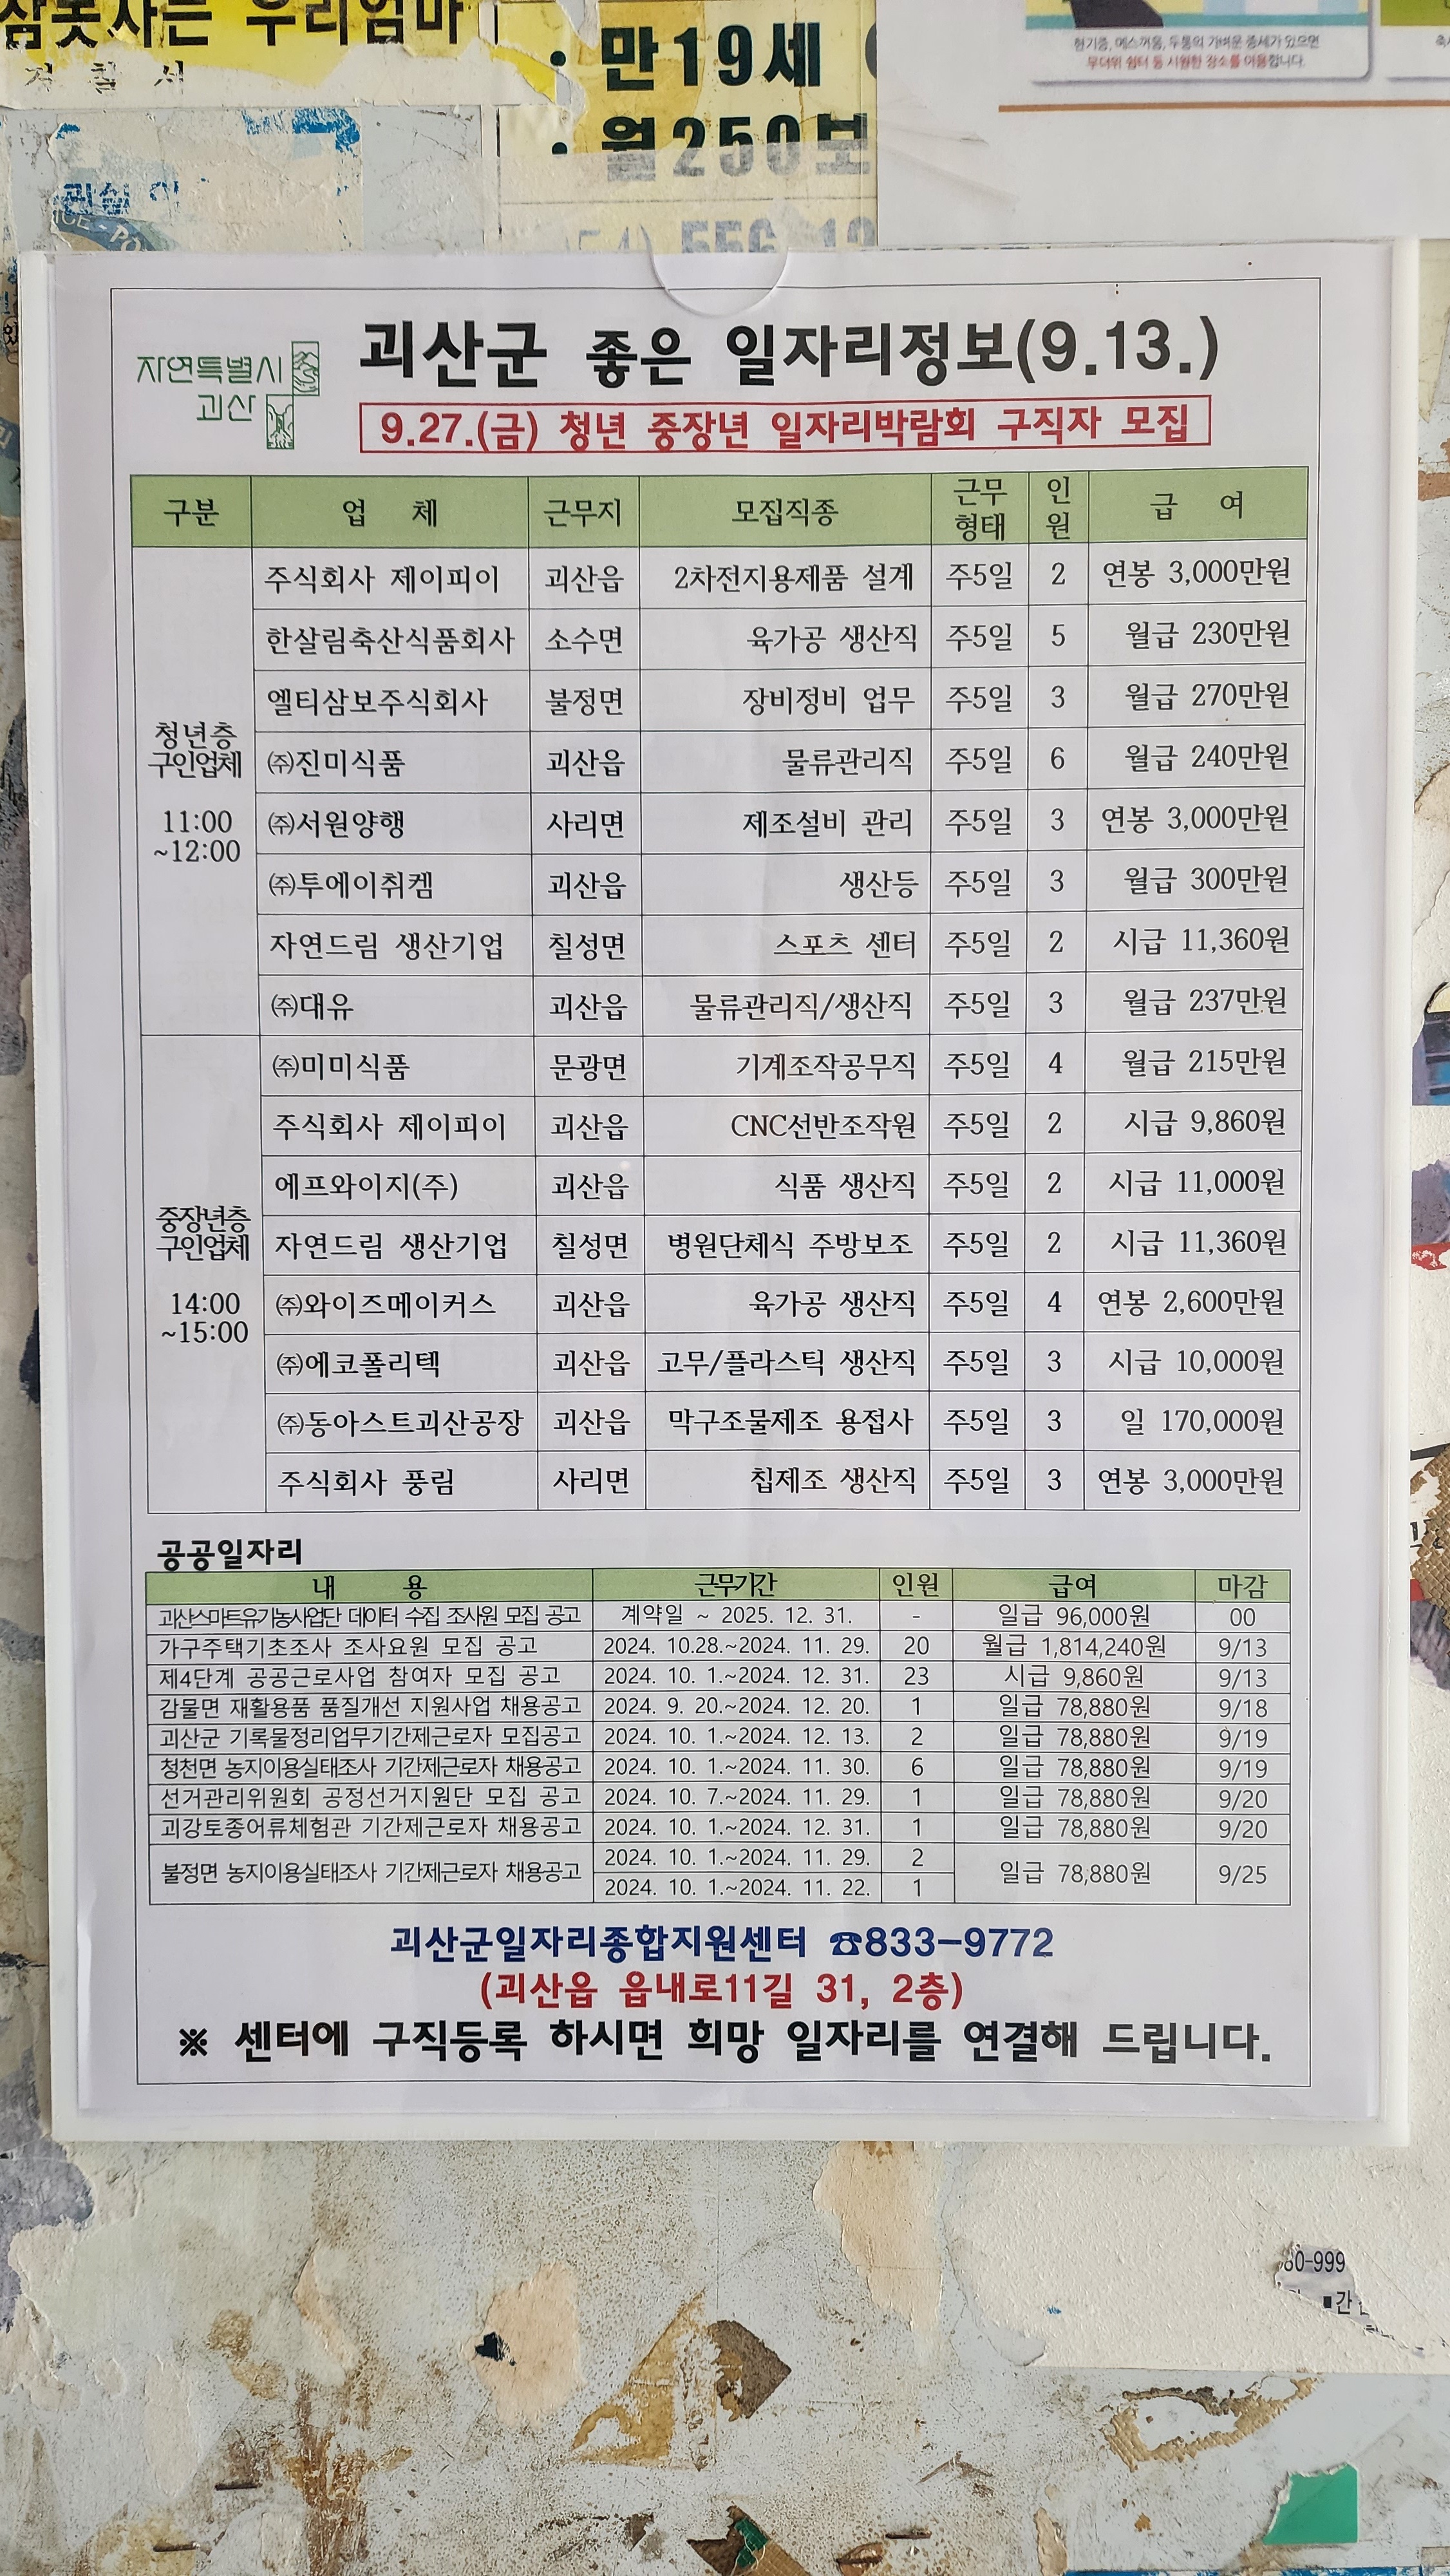 참못사는 우리엄마
경 찰 서
· 만19세
· 월250보
현기증, 메스꺼움, 두통의 가벼운 증세가 있으면
무더위 쉼터 등 시원한 장소를 이용합니다.
자연특별시
괴산
괴산군 좋은 일자리정보(9.13.)
9.27.(금) 청년 중장년 일자리박람회 구직자 모집
구분 업 체 근무지 모집직종 근무형태 인원 급 여
청년층
구인업체
11:00
~12:00
주식회사 제이피이 괴산읍 2차전지용제품 설계 주5일 2 연봉 3,000만원
한살림축산식품회사 소수면 육가공 생산직 주5일 5 월급 230만원
엘티삼보주식회사 불정면 장비정비 업무 주5일 3 월급 270만원
㈜진미식품 괴산읍 물류관리직 주5일 6 월급 240만원
㈜서원양행 사리면 제조설비 관리 주5일 3 연봉 3,000만원
㈜투에이취켐 괴산읍 생산등 주5일 3 월급 300만원
자연드림 생산기업 칠성면 스포츠 센터 주5일 2 시급 11,360원
㈜대유 괴산읍 물류관리직/생산직 주5일 3 월급 237만원
중장년층
구인업체
14:00
~15:00
㈜미미식품 문광면 기계조작공무직 주5일 4 월급 215만원
주식회사 제이피이 괴산읍 CNC선반조작원 주5일 2 시급 9,860원
에프와이지(주) 괴산읍 식품 생산직 주5일 2 시급 11,000원
자연드림 생산기업 칠성면 병원단체식 주방보조 주5일 2 시급 11,360원
㈜와이즈메이커스 괴산읍 육가공 생산직 주5일 4 연봉 2,600만원
㈜에코폴리텍 괴산읍 고무/플라스틱 생산직 주5일 3 시급 10,000원
㈜동아스트괴산공장 괴산읍 막구조물제조 용접사 주5일 3 일 170,000원
주식회사 풍림 사리면 칩제조 생산직 주5일 3 연봉 3,000만원
공공일자리
내 용 근무기간 인원 급여 마감
괴산스마트유기농사업단 데이터 수집 조사원 모집 공고 계약일 ~ 2025. 12. 31. - 일급 96,000원 00
가구주택기초조사 조사요원 모집 공고 2024. 10.28.~2024. 11. 29. 20 월급 1,814,240원 9/13
제4단계 공공근로사업 참여자 모집 공고 2024. 10. 1.~2024. 12. 31. 23 시급 9,860원 9/13
감물면 재활용품 품질개선 지원사업 채용공고 2024. 9. 20.~2024. 12. 20. 1 일급 78,880원 9/18
괴산군 기록물정리업무기간제근로자 모집공고 2024. 10. 1.~2024. 12. 13. 2 일급 78,880원 9/19
청천면 농지이용실태조사 기간제근로자 채용공고 2024. 10. 1.~2024. 11. 30. 6 일급 78,880원 9/19
선거관리위원회 공정선거지원단 모집 공고 2024. 10. 7.~2024. 11. 29. 1 일급 78,880원 9/20
괴강토종어류체험관 기간제근로자 채용공고 2024. 10. 1.~2024. 12. 31. 1 일급 78,880원 9/20
불정면 농지이용실태조사 기간제근로자 채용공고 2024. 10. 1.~2024. 11. 29. 2 일급 78,880원 9/25
2024. 10. 1.~2024. 11. 22. 1
괴산군일자리종합지원센터 ☎833-9772
(괴산읍 읍내로11길 31, 2층)
※ 센터에 구직등록 하시면 희망 일자리를 연결해 드립니다.
60-999
■간